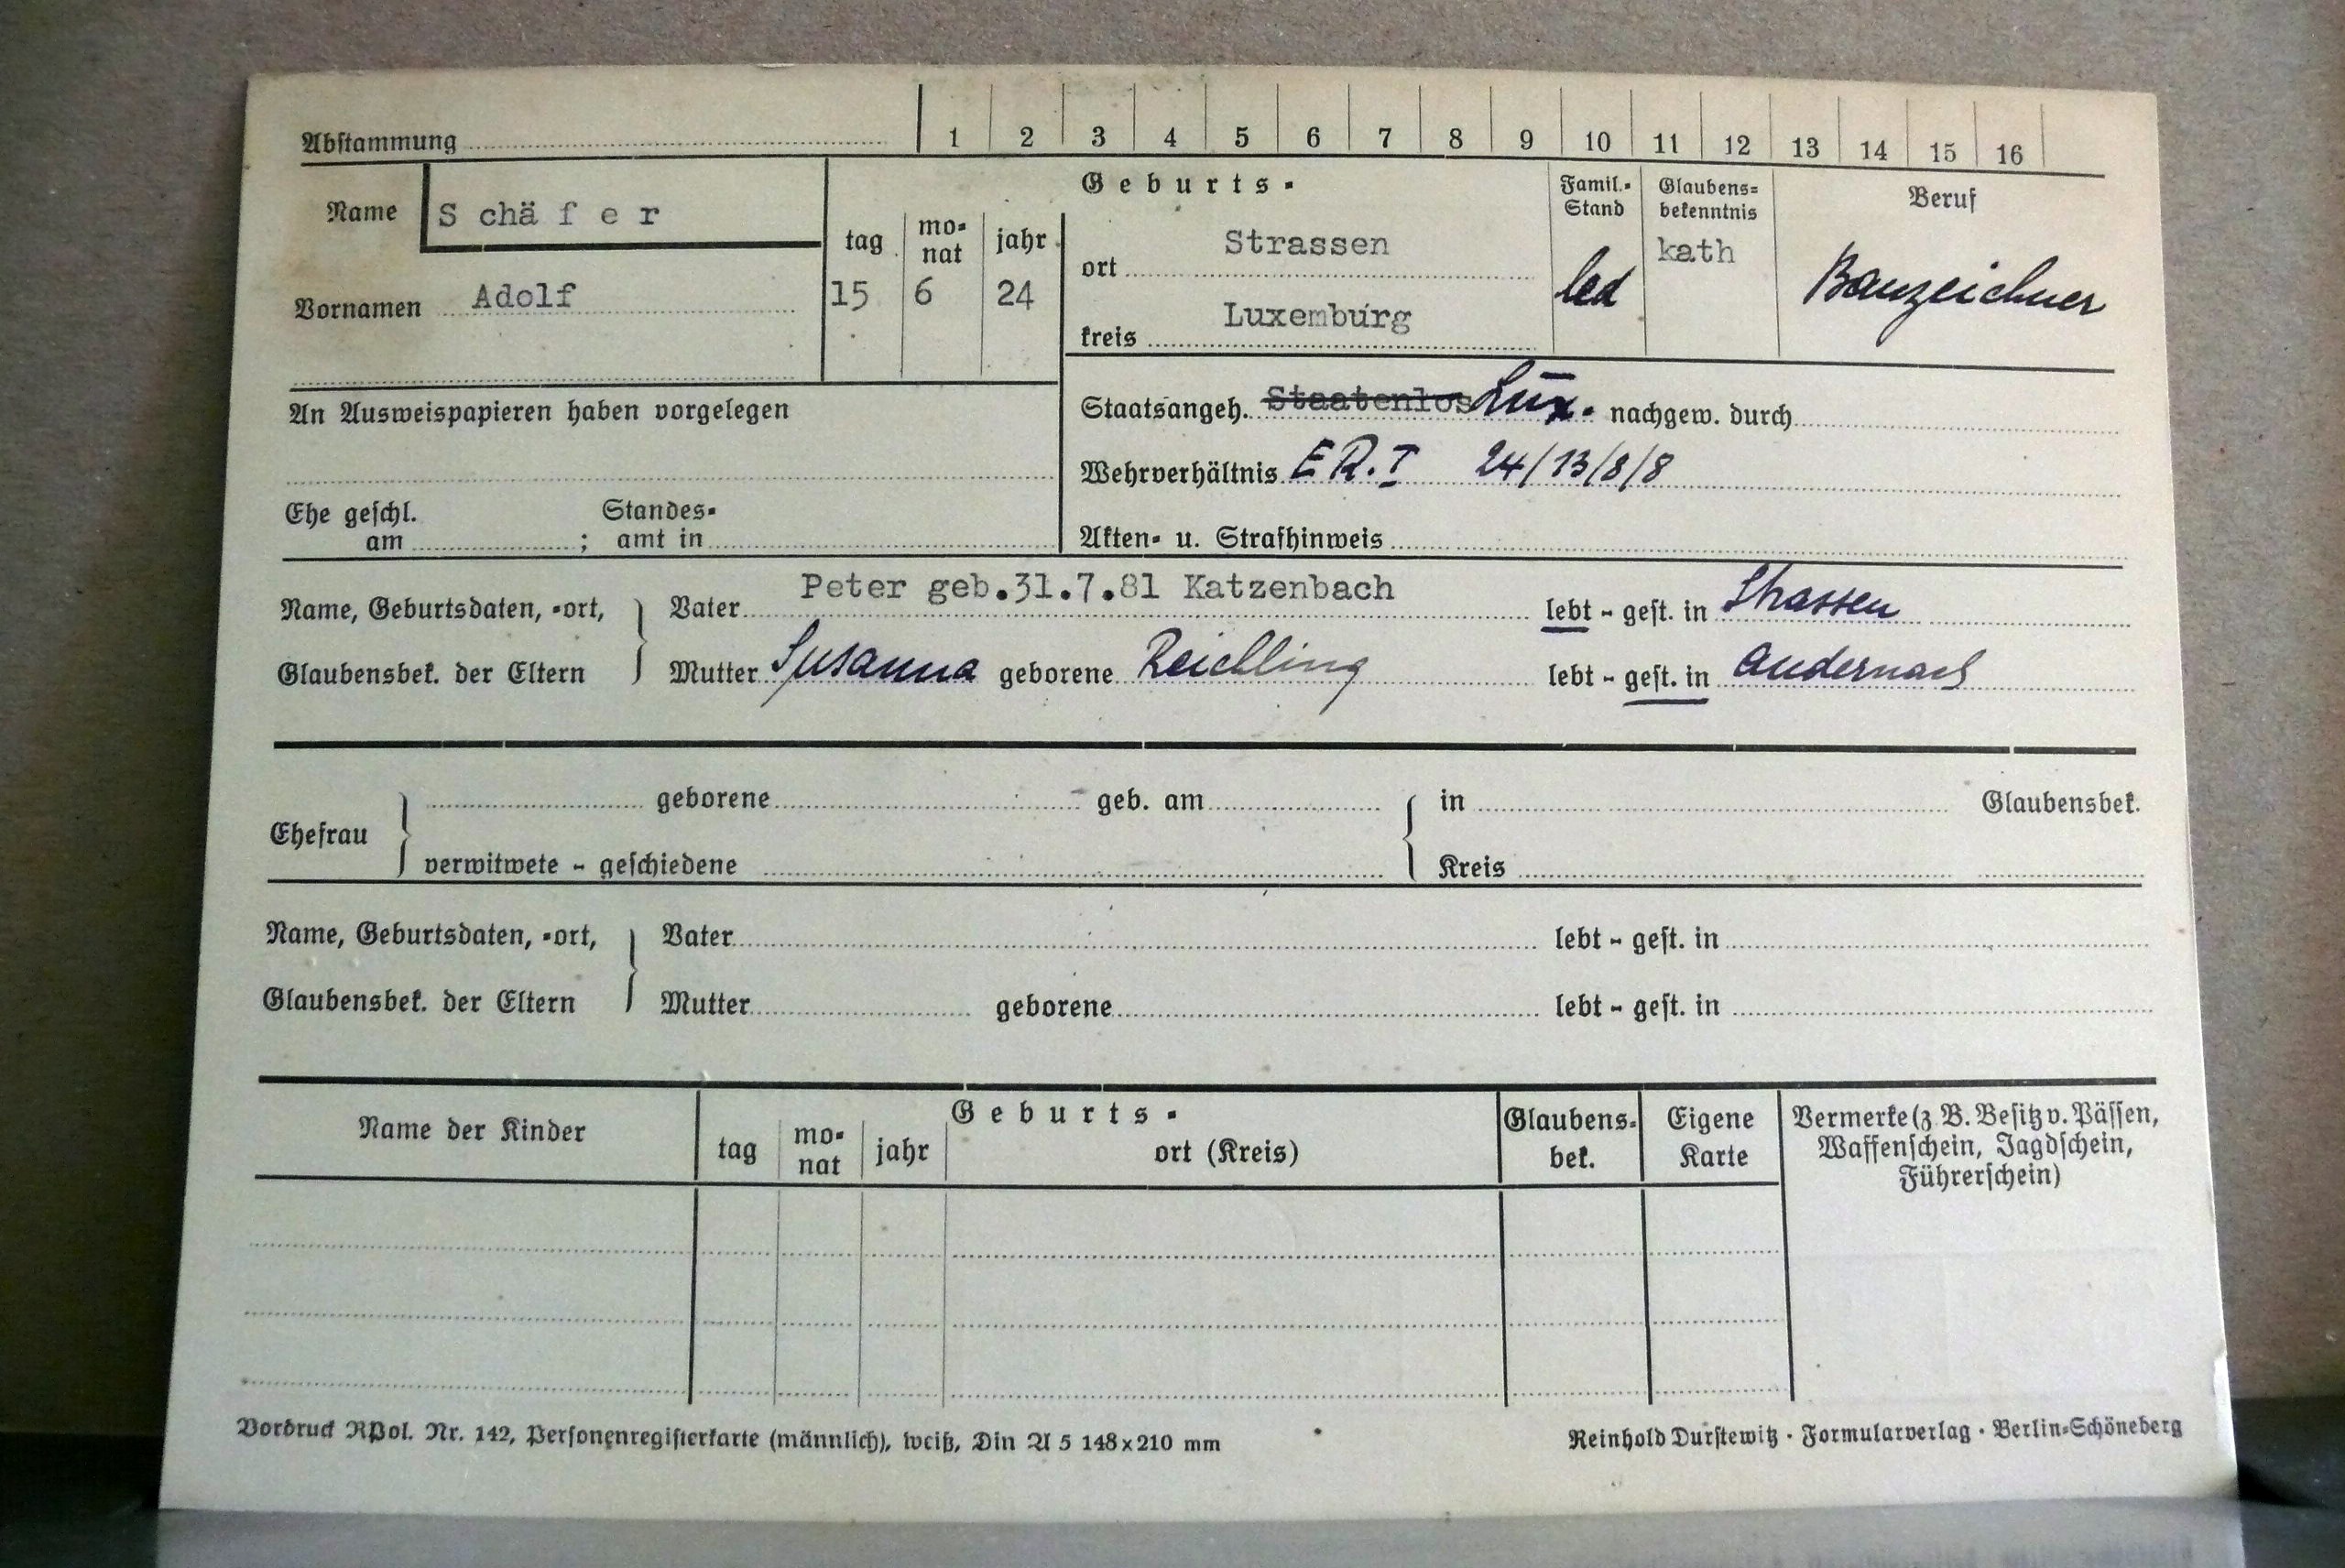 Abstammung 1 2 3 4 5 6 7 8 9 10 11 12 13 14 15 16
Name Schäfer
Vornamen Adolf
Geburts-
tag monat jahr
15 6 24
ort Strassen
kreis Luxemburg
Famil.-Stand
led
Glaubens-bekenntnis
kath
Beruf
Bauzeichner
An Ausweispapieren haben vorgelegen
Staatsangeh. Staatenlos Lux. nachgew. durch
Wehrverhältnis ER.I 24/13/8/8
Ehe geschl. am ; Standes-amt in
Akten- u. Strafhinweis
Name, Geburtsdaten, -ort, Vater Peter geb.31.7.81 Katzenbach lebt - gest. in Strassen
Glaubensbek. der Eltern Mutter Susanna geborene Reichling lebt - gest. in Andernach
Ehefrau geborene geb. am in Glaubensbek.
verwitwete - geschiedene Kreis
Name, Geburtsdaten, -ort, Vater lebt - gest. in
Glaubensbek. der Eltern Mutter geborene lebt - gest. in
Name der Kinder
Geburts-
tag mo-nat jahr ort (Kreis)
Glaubens-bek.
Eigene Karte
Vermerke (z. B. Besitz v. Pässen,
Waffenschein, Jagdschein,
Führerschein)
Vordruck RPol. Nr. 142, Personenregisterkarte (männlich), weiß, Din A 5 148x210 mm
Reinhold Durstewitz · Formularverlag · Berlin-Schöneberg